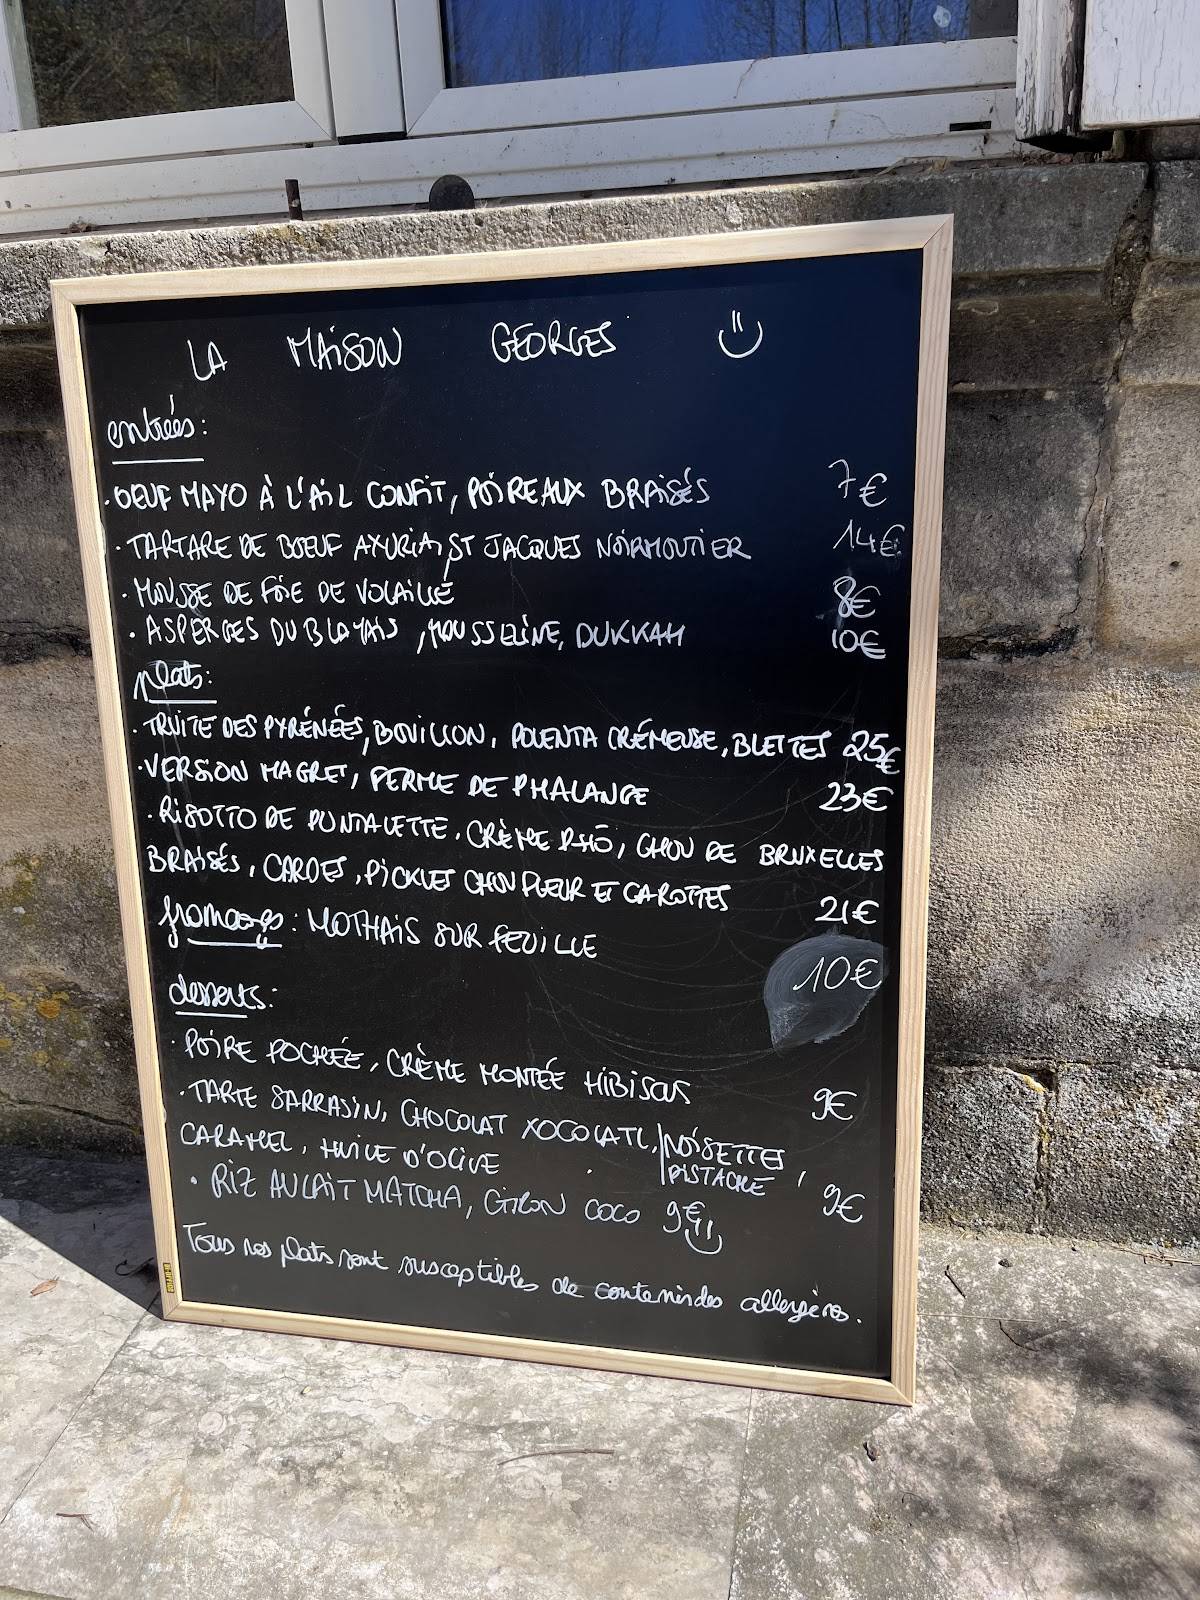 LA MAISON GEORGES
entrées:
· OEUF MAYO À L'AIL CONFIT, POIREAUX BRAISÉS 7€
· TARTARE DE BOEUF AXURIA, ST JACQUES NOIRMOUTIER 14€
· MOUSSE DE FOIE DE VOLAILLE 8€
· ASPERGES DU BLAYAIS, MOUSSELINE, DUKKAH 10€
plats:
· TRUITE DES PYRÉNÉES, BOUILLON, POLENTA CRÉMEUSE, BLETTES 25€
· VERSION MAGRET, FERME DE PHALANGE 23€
· RISOTTO DE PUNTALETTE, CRÈME PHÔ, CHOU DE BRUXELLES
BRAISÉS, CARDES, PICKLES CHOU FLEUR ET CAROTTES 21€
fromages: MOTHAIS SUR FEUILLE 10€
desserts:
· POIRE POCHÉE, CRÈME MONTÉE HIBISCUS 9€
· TARTE SARRASIN, CHOCOLAT XOCOLATL, NOISETTES,
PISTACHE
CARAMEL, HUILE D'OLIVE 9€
· RIZ AU LAIT MATCHA, CITRON COCO 9€
Tous nos plats sont susceptibles de contenir des allergènes.